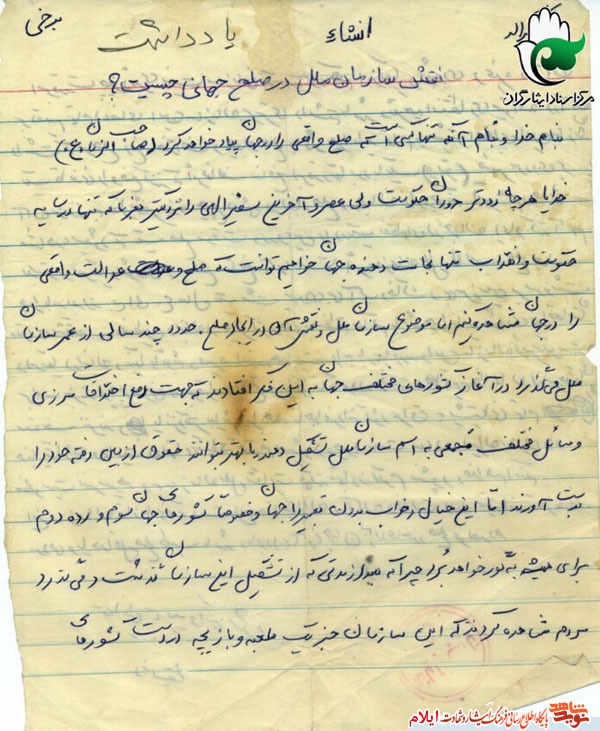 برخی
یادداشت
انشاء
مرکز اسناد ایثارگران
نقش سازمان ملل در صلح جهانی چیست؟
بنام خدا و بنام آنکه تنها کسی است که صلح واقعی را در جهان پیاد خواهد کرد (صاحب الزمان عج)
خدایا هر چه زودتر دوران حکومت ولی عصر و آخرین سفیر الهی را نزدیکتر بفرما که تنها در سایه
حکومت و انقلاب تنها نجات دهنده جهان خواهیم توانست که صلح و عدالت واقعی
را در جهان مشاهده کنیم اما موضوع سازمان ملل و نقش آن در ایجاد صلح. حدود چند سالی از عمر سازمان
ملل می‌گذرد در آغاز کشورهای مختلف جهان به این فکر افتادند که جهت رفع اختلافات مرزی
و مسائل مختلف مجمعی به اسم سازمان ملل تشکیل دهند تا بهتر بتوانند حقوق از بین رفته خود را
بدست آورند اما این خیال و خواب بدون تعبیر را جهان و خصوصا کشورهای جهان سوم و رده دوم
برای همیشه به گور خواهد برد چرا که بعد از مدتی که از تشکیل این سازمان گذشت و می‌گذرد
مردم مشاهده کردند که این سازمان جز یک ملعبه و بازیچه در دست کشورهای
نوید شاهد
پایگاه اطلاع رسانی فرهنگ ایثار و شهادت ایلام